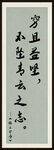 穷且益坚，
不坠青云之志。